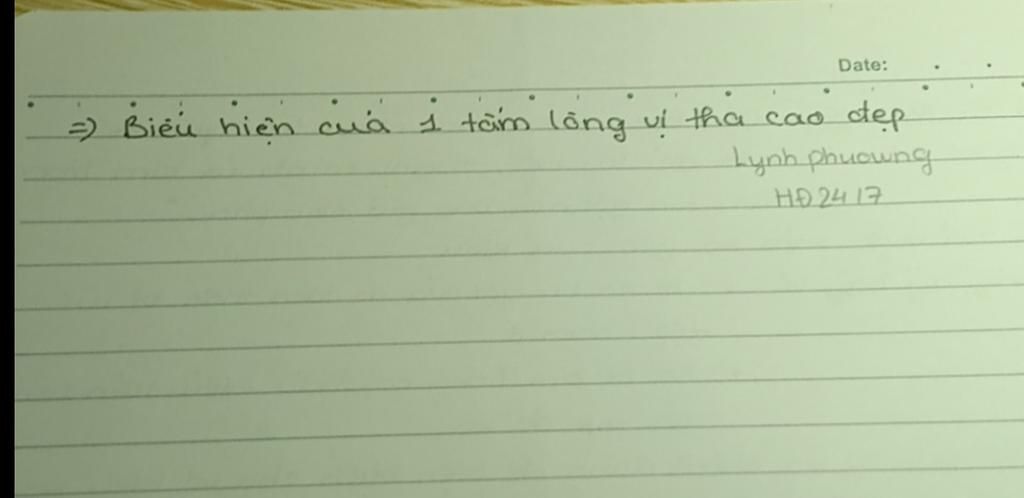 Date:
=> Biểu hiện của 1 tấm lòng vị tha cao đẹp
Lynh phuowng
HĐ2417